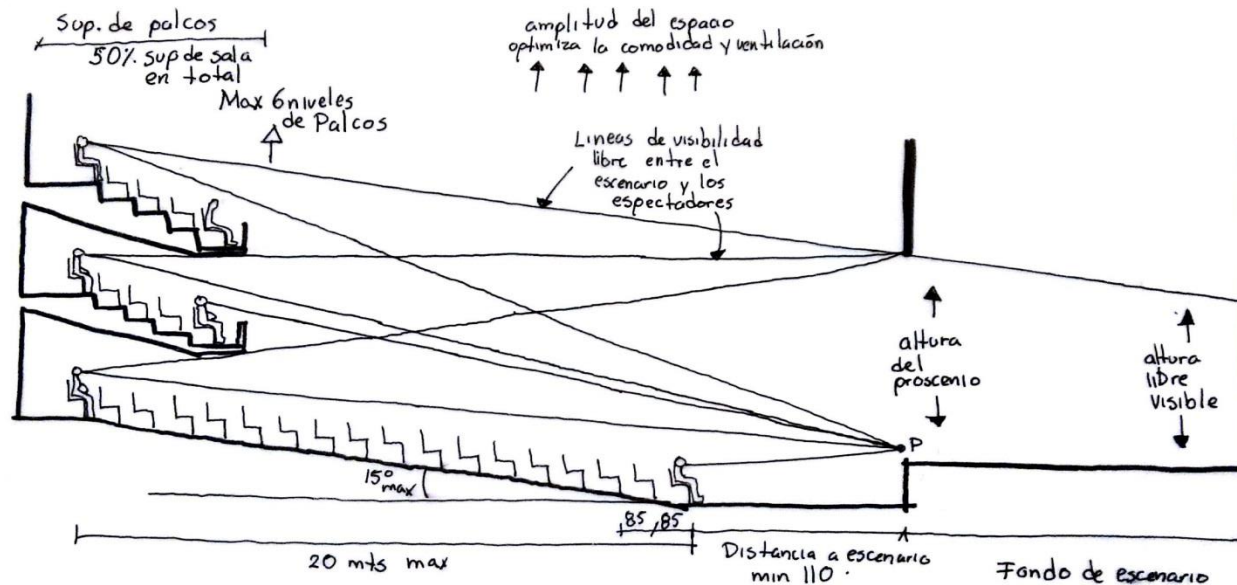 Sup. de palcos
50% sup de sala
en total
Max 6 niveles
de Palcos
amplitud del espacio
optimiza la comodidad y ventilación
Lineas de visibilidad
libre entre el
escenario y los
espectadores
altura
del
proscenio
altura
libre
visible
P
15° max
85 / 85
20 mts max
Distancia a escenario
min 110.
Fondo de escenario